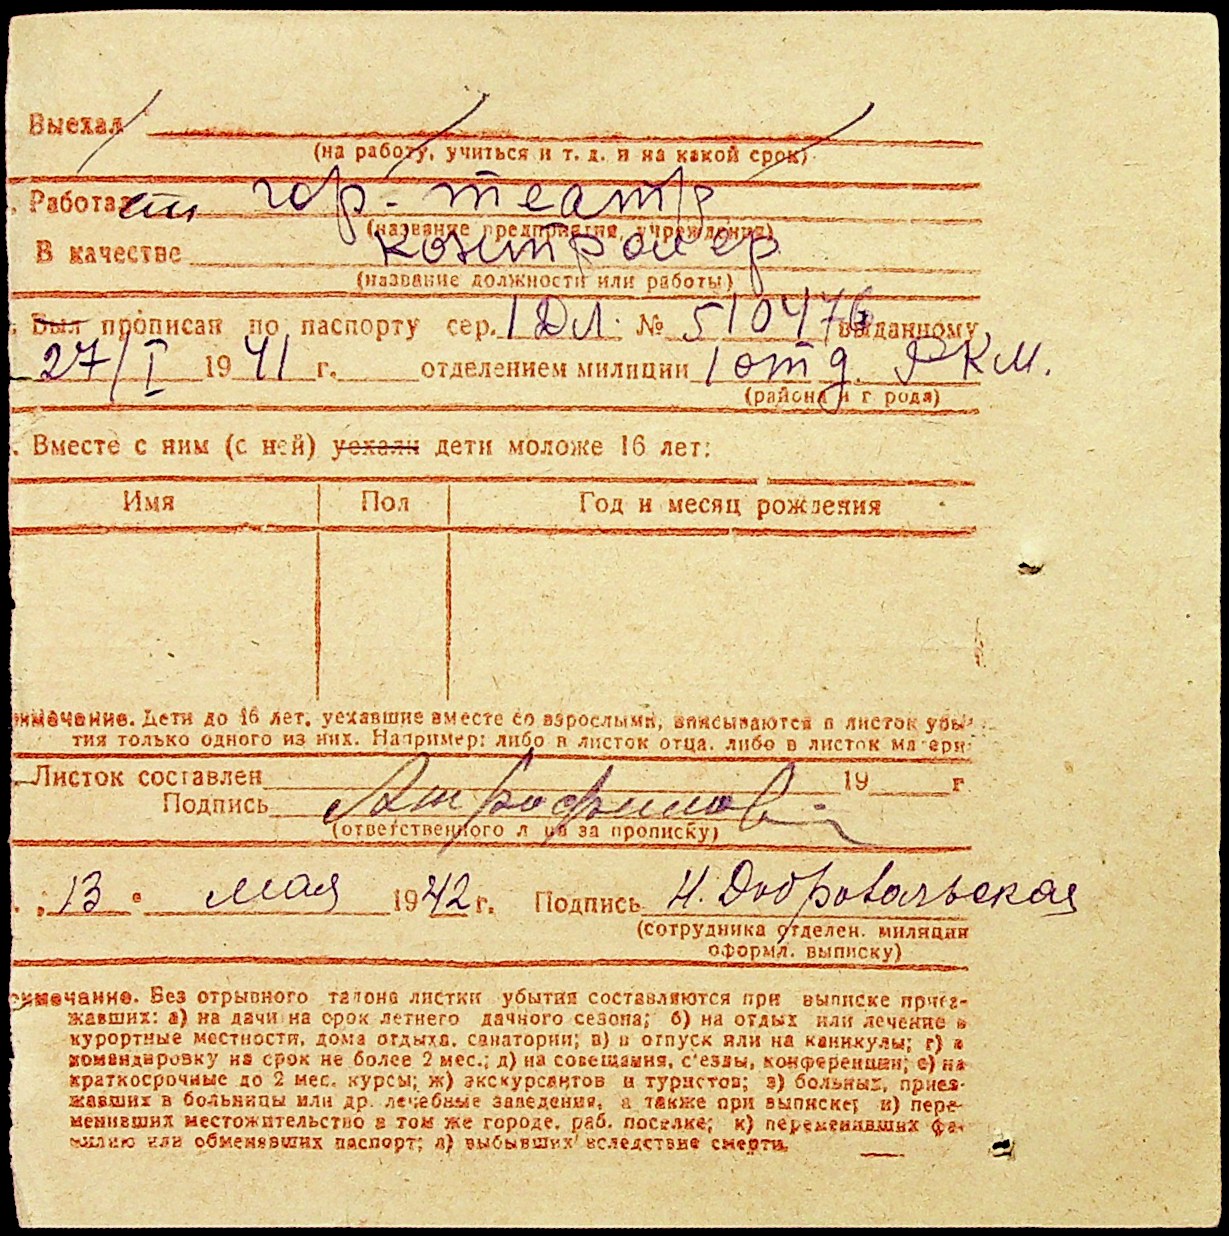 Выехал
(на работу, учиться и т. д. и на какой срок)
. Работает гор. театр
(название предприятия, учреждения)
В качестве контролер
(название должности или работы)
. Был прописан по паспорту сер. 1 ДЛ. № 510476 выданному
27/I 1941 г. отделением милиции 1 отд. РКМ.
(района и города)
. Вместе с ним (с ней) уехали дети моложе 16 лет:
Имя Пол Год и месяц рождения
имечание. Дети до 16 лет, уехавшие вместе со взрослыми, вписываются в листок убы-
тия только одного из них. Например: либо в листок отца, либо в листок матери
Листок составлен 19 г
Подпись
(ответственного лица за прописку)
. „13" мая 1942 г. Подпись Н. Добровольская
(сотрудника отделен. милиции
оформл. выписку)
имечание. Без отрывного талона листки убытия составляются при выписке приез-
жавших: а) на дачи на срок летнего дачного сезона; б) на отдых или лечение в
курортные местности, дома отдыха, санатории; в) в отпуск или на каникулы; г) в
командировку на срок не более 2 мес.; д) на совещания, с'езды, конференции; е) на
краткосрочные до 2 мес. курсы; ж) экскурсантов и туристов; з) больных, приез-
жавших в больницы или др. лечебные заведения, а также при выписке; и) пере-
менивших местожительство в том же городе, раб. поселке; к) переменивших фа-
милию или обменявших паспорт; л) выбывших вследствие смерти.